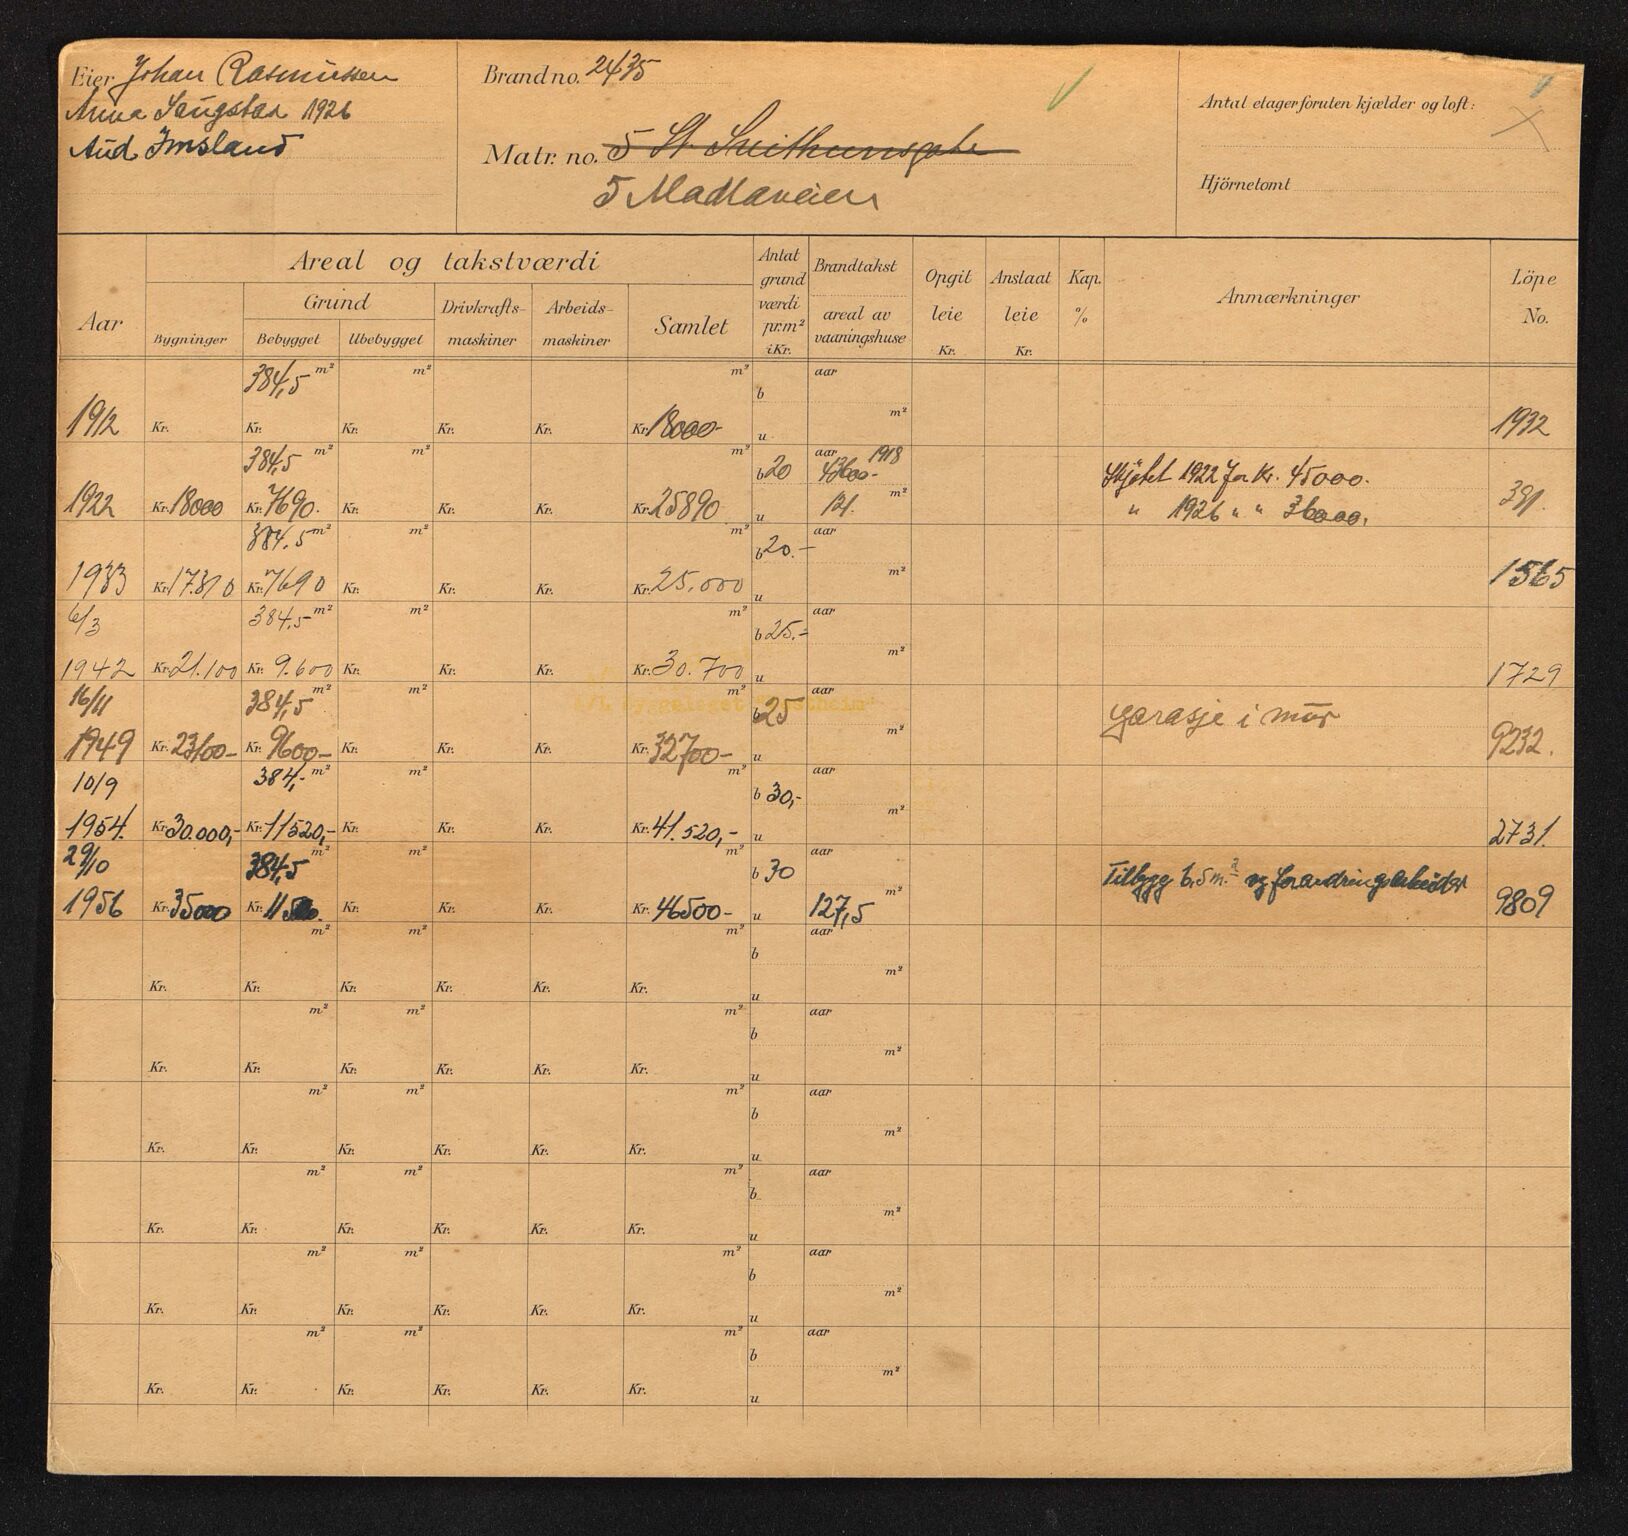 Eier Johan Rasmussen
Anna Saugstad 1926
Aud Imsland
Brand no. 2435
Matr. no. 5 St. Svithunsgate
5 Madlaveien
Antal etager foruten kjælder og loft:
Hjörnetomt
Aar
Areal og takstværdi
Bygninger
Grund
Bebygget
Ubebygget
Drivkrafts-
maskiner
Arbeids-
maskiner
Samlet
Antat
grund
værdi
pr. m²
i Kr.
Brandtakst
areal av
vaaningshuse
Opgit
leie
Kr.
Anslaat
leie
Kr.
Kap.
%
Anmærkninger
Löpe
No.
384,5 m² m² m² b aar
1912 Kr. Kr. Kr. Kr. Kr. Kr. 18000- u m² 1932
384,5 m² m² m² b 20 aar 1918
43600.- Skjötet 1922 for Kr. 45000.
1922 Kr. 18000 Kr. 7690. Kr. Kr. Kr. Kr. 25890 u 121. m² " 1926 " " 36000. 391.
384.5 m² m² m² b 20.- aar
1933 Kr. 17.310 Kr. 7690 Kr. Kr. Kr. Kr. 25.000 u m² 1565
6/3 384.5- m² m² m² b 25.- aar
1942 Kr. 21.100 Kr. 9.600 Kr. Kr. Kr. Kr. 30.700 u m² 1729
16/11 384,5 m² m² m² b 25 aar garasje i mur
1949 Kr. 23100- Kr. 9600- Kr. Kr. Kr. Kr. 32700- u m² 9232.
10/9 384,- m² m² m² b 30,- aar
1954. Kr. 30.000,- Kr. 11520,- Kr. Kr. Kr. Kr. 41.520,- u m² 2731.
29/10 384,5 m² m² m² b 30 aar Tilbygg 6,5 m.² og forandringsarbeider
1956 Kr. 35000 Kr. 11500. Kr. Kr. Kr. Kr. 46500- u 127,5 m² 9809
m² m² m² b aar
Kr. Kr. Kr. Kr. Kr. Kr. u m²
m² m² m² b aar
Kr. Kr. Kr. Kr. Kr. Kr. u m²
m² m² m² b aar
Kr. Kr. Kr. Kr. Kr. Kr. u m²
m² m² m² b aar
Kr. Kr. Kr. Kr. Kr. Kr. u m²
m² m² m² b aar
Kr. Kr. Kr. Kr. Kr. Kr. u m²
m² m² m² b aar
Kr. Kr. Kr. Kr. Kr. Kr. u m²